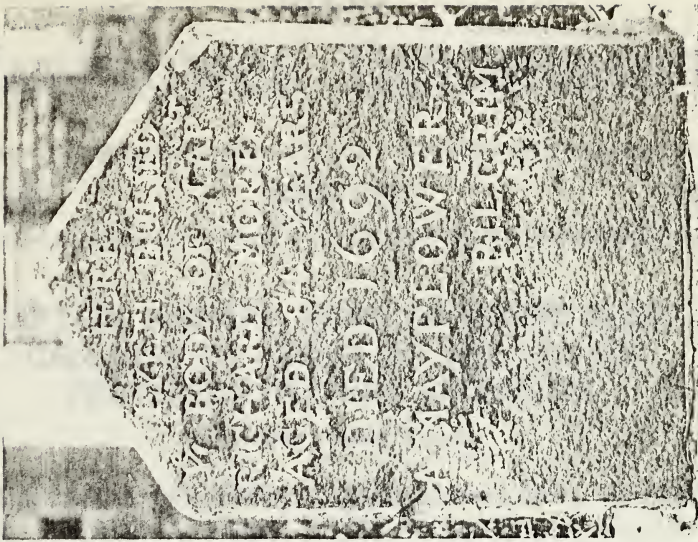 HERE
LYETH BURIED
Yᵉ BODY OF CAP
RICHARD MORE
AGED 84 YEARS
DIED 1692
A MAYFLOWER
PILGRIM